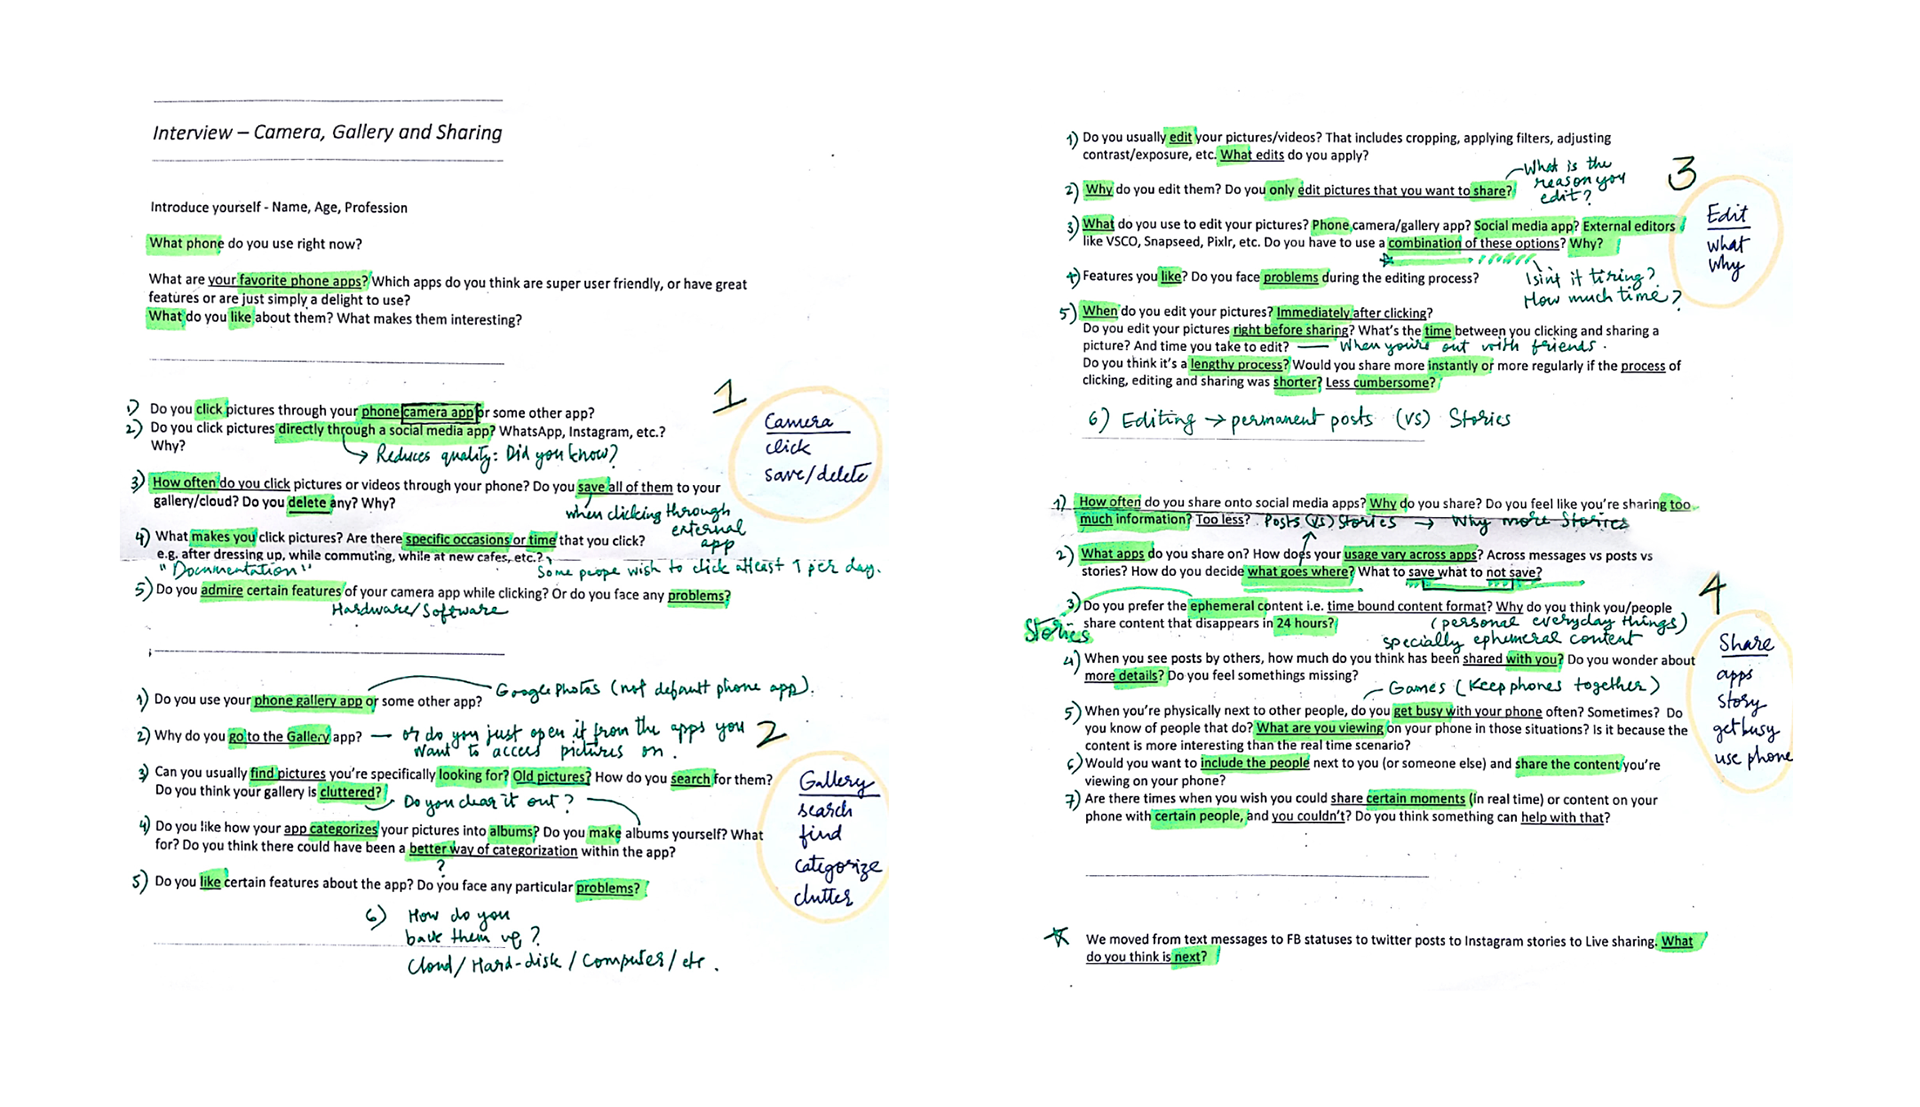 Interview – Camera, Gallery and Sharing
Introduce yourself - Name, Age, Profession
What phone do you use right now?
What are your favorite phone apps? Which apps do you think are super user friendly, or have great
features or are just simply a delight to use?
What do you like about them? What makes them interesting?
1
Camera
click
save/delete
1) Do you click pictures through your phone camera app or some other app?
2) Do you click pictures directly through a social media app? WhatsApp, Instagram, etc.?
Why?
→ Reduces quality: Did you know?
3) How often do you click pictures or videos through your phone? Do you save all of them to your
gallery/cloud? Do you delete any? Why?
when clicking through
external
app
4) What makes you click pictures? Are there specific occasions or time that you click?
e.g. after dressing up, while commuting, while at new cafes, etc.?
"Documentation"
Some people wish to click atleast 1 per day.
5) Do you admire certain features of your camera app while clicking? Or do you face any problems?
Hardware/Software
Google Photos (not default phone app).
1) Do you use your phone gallery app or some other app?
2) Why do you go to the Gallery app? — or do you just open it from the apps you
want to access pictures on.
2
Gallery
search
find
categorize
clutter
3) Can you usually find pictures you're specifically looking for? Old pictures? How do you search for them?
Do you think your gallery is cluttered?
Do you clear it out?
4) Do you like how your app categorizes your pictures into albums? Do you make albums yourself? What
for? Do you think there could have been a better way of categorization within the app?
?
5) Do you like certain features about the app? Do you face any particular problems?
6) How do you
back them up?
Cloud/Hard-disk/Computer/etc.
1) Do you usually edit your pictures/videos? That includes cropping, applying filters, adjusting
contrast/exposure, etc. What edits do you apply?
What is the
reason you
edit?
2) Why do you edit them? Do you only edit pictures that you want to share?
3
Edit
what
why
3) What do you use to edit your pictures? Phone camera/gallery app? Social media app? External editors
like VSCO, Snapseed, Pixlr, etc. Do you have to use a combination of these options? Why?
4) Features you like? Do you face problems during the editing process?
Isint it tiring?
How much time?
5) When do you edit your pictures? Immediately after clicking?
Do you edit your pictures right before sharing? What's the time between you clicking and sharing a
picture? And time you take to edit? — When you're out with friends.
Do you think it's a lengthy process? Would you share more instantly or more regularly if the process of
clicking, editing and sharing was shorter? Less cumbersome?
6) Editing → permanent posts (VS) Stories
1) How often do you share onto social media apps? Why do you share? Do you feel like you're sharing too
much information? Too less? Posts (VS) Stories → Why more Stories
2) What apps do you share on? How does your usage vary across apps? Across messages vs posts vs
stories? How do you decide what goes where? What to save what to not save?
3) Do you prefer the ephemeral content i.e. time bound content format? Why do you think you/people
share content that disappears in 24 hours?
Stories
(personal everyday things)
specially ephemeral content
4
Share
apps
story
get busy
use phone
4) When you see posts by others, how much do you think has been shared with you? Do you wonder about
more details? Do you feel somethings missing?
Games (Keep phones together)
5) When you're physically next to other people, do you get busy with your phone often? Sometimes? Do
you know of people that do? What are you viewing on your phone in those situations? Is it because the
content is more interesting than the real time scenario?
6) Would you want to include the people next to you (or someone else) and share the content you're
viewing on your phone?
7) Are there times when you wish you could share certain moments (in real time) or content on your
phone with certain people, and you couldn't? Do you think something can help with that?
We moved from text messages to FB statuses to twitter posts to Instagram stories to Live sharing. What
do you think is next?